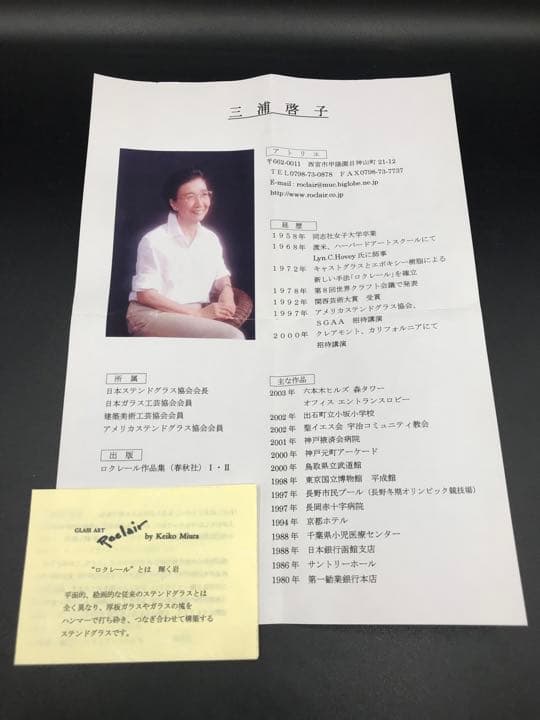 三浦啓子
アトリエ
〒662-0011 西宮市甲陽園目神山町 21-12
TEL0798-73-0878 FAX0798-73-7737
E-mail : roclair@muc.biglobe.ne.jp
http://www.roclair.co.jp
経歴
1958年 同志社女子大学卒業
1968年 渡米、ハーバードアートスクールにて
Lyn.C.Hovey 氏に師事
1972年 キャストグラスとエポキシー樹脂による
新しい手法「ロクレール」を確立
1978年 第8回世界クラフト会議で発表
1992年 関西芸術大賞 受賞
1997年 アメリカステンドグラス協会、
SGAA 招待講演
2000年 クレアモント、カリフォルニアにて
招待講演
所属
日本ステンドグラス協会会長
日本ガラス工芸協会会員
建築美術工芸協会会員
アメリカステンドグラス協会会員
出版
ロクレール作品集（春秋社）Ⅰ・Ⅱ
主な作品
2003年 六本木ヒルズ 森タワー
オフィス エントランスロビー
2002年 出石町立小坂小学校
2002年 聖イエス会 宇治コミュニティ教会
2001年 神戸掖済会病院
2000年 神戸元町アーケード
2000年 鳥取県立武道館
1998年 東京国立博物館 平成館
1997年 長野市民プール（長野冬期オリンピック競技場）
1997年 長岡赤十字病院
1994年 京都ホテル
1988年 千葉県小児医療センター
1988年 日本銀行函館支店
1986年 サントリーホール
1980年 第一勧業銀行本店
GLASS ART
Roclair by Keiko Miura
"ロクレール"とは 輝く岩
平面的、絵画的な従来のステンドグラスとは
全く異なり、厚板ガラスやガラスの塊を
ハンマーで打ち砕き、つなぎ合わせて構築する
ステンドグラスです。